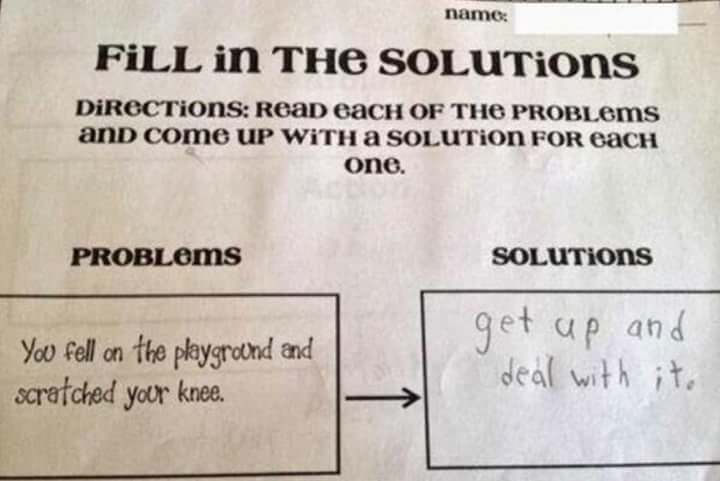 name:
FiLL in THe SOLUTiOnS
DiReCTiOnS: ReaD eaCH OF THe PROBLemS
anD COme UP WiTH a SOLUTiOn FOR eaCH
One.
PROBLemS
SOLUTiOnS
You fell on the playground and
scratched your knee.
get up and
deal with it.